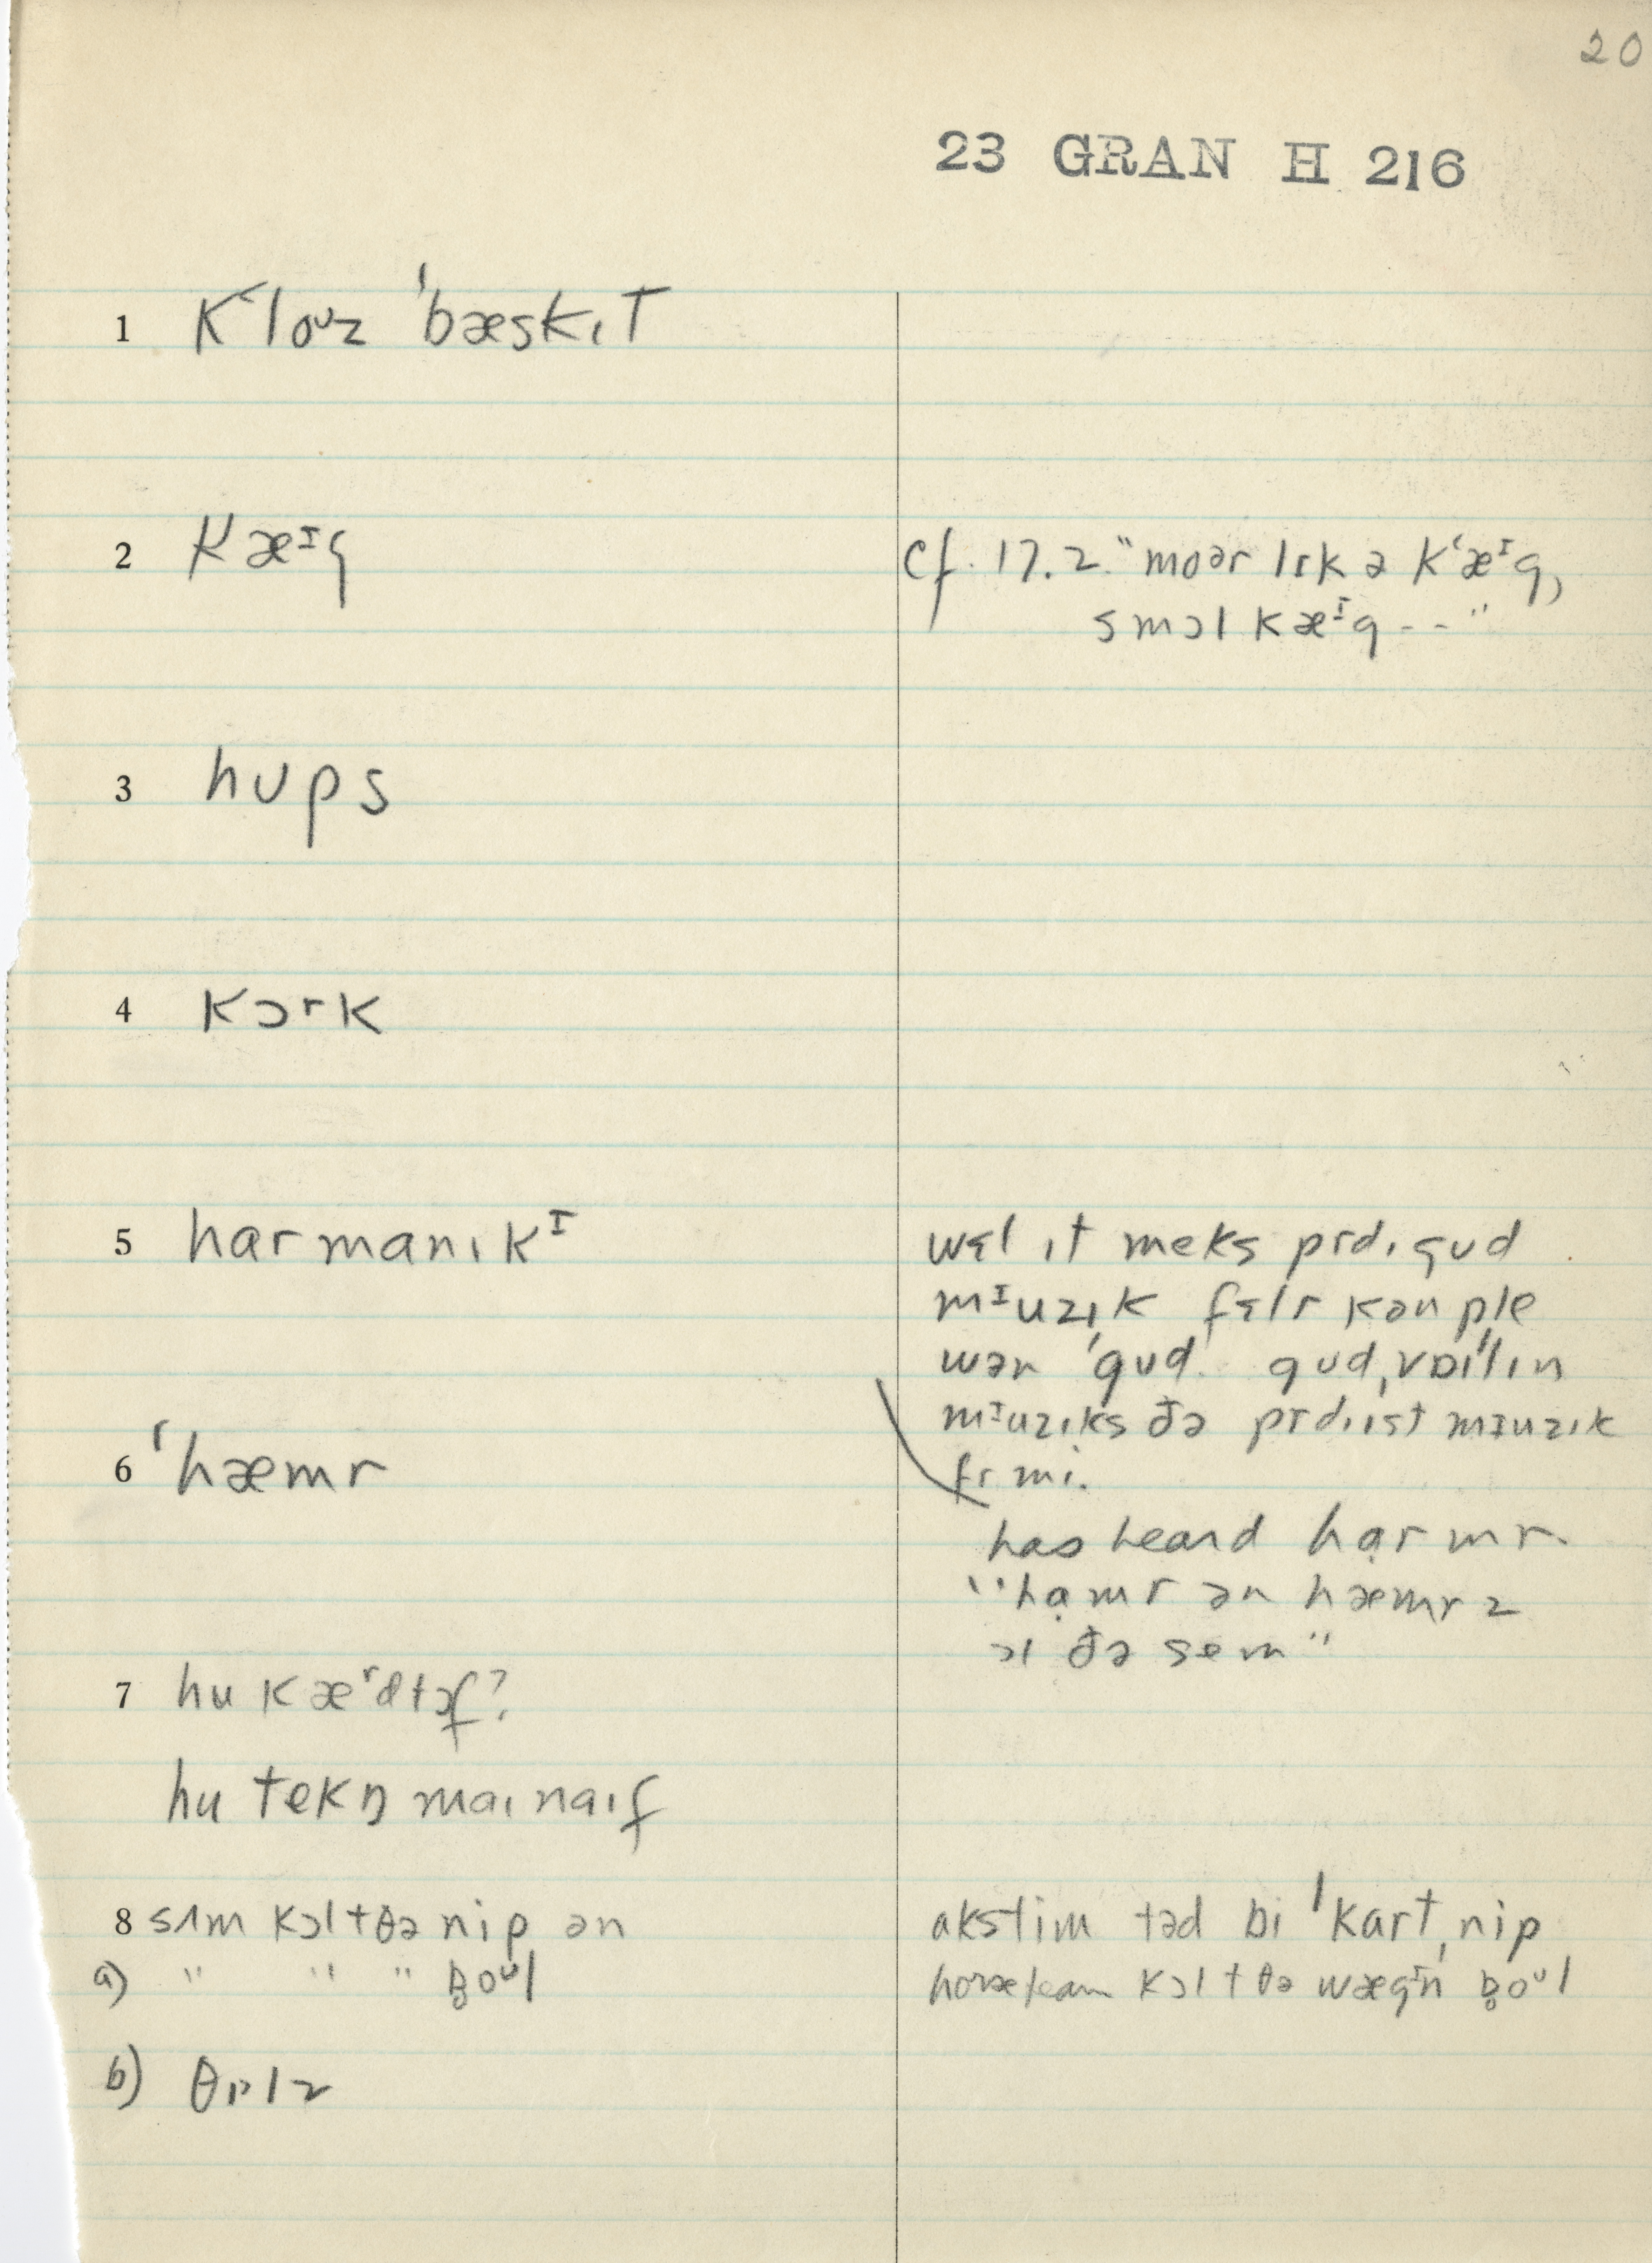 20
23 GRAN H 216
1 kʻloᶷz ˈbæskɪt
2 kæᴵg
cf. 17.2. "moər lɪk ə kʻæᴵg,
smɔl kæᴵg -- "
3 hups
4 kɔrk
5 harmanɪkᴵ
wɛl ɪt meks prdɪ gud
mᴵuzɪk
wər ˈgud gud
mᴵuzɪks ðə prdɪɪst mɪuzɪk
fr mi.
6 ˈhæmr
has heard hạrmr
"hạmr ən hæmrz
ɔl ðə sem"
7 hu kæʳd ɪt ɔf?
hu tekŋ maɪ naɪf
8 sʌm kɔl t θə nip ən
a) " " " b̥oᶷl
akstim təd bi ˈkartˌnip
horse team kɔl t θə wægᴵn b̥oᶷl
b) θɪlz